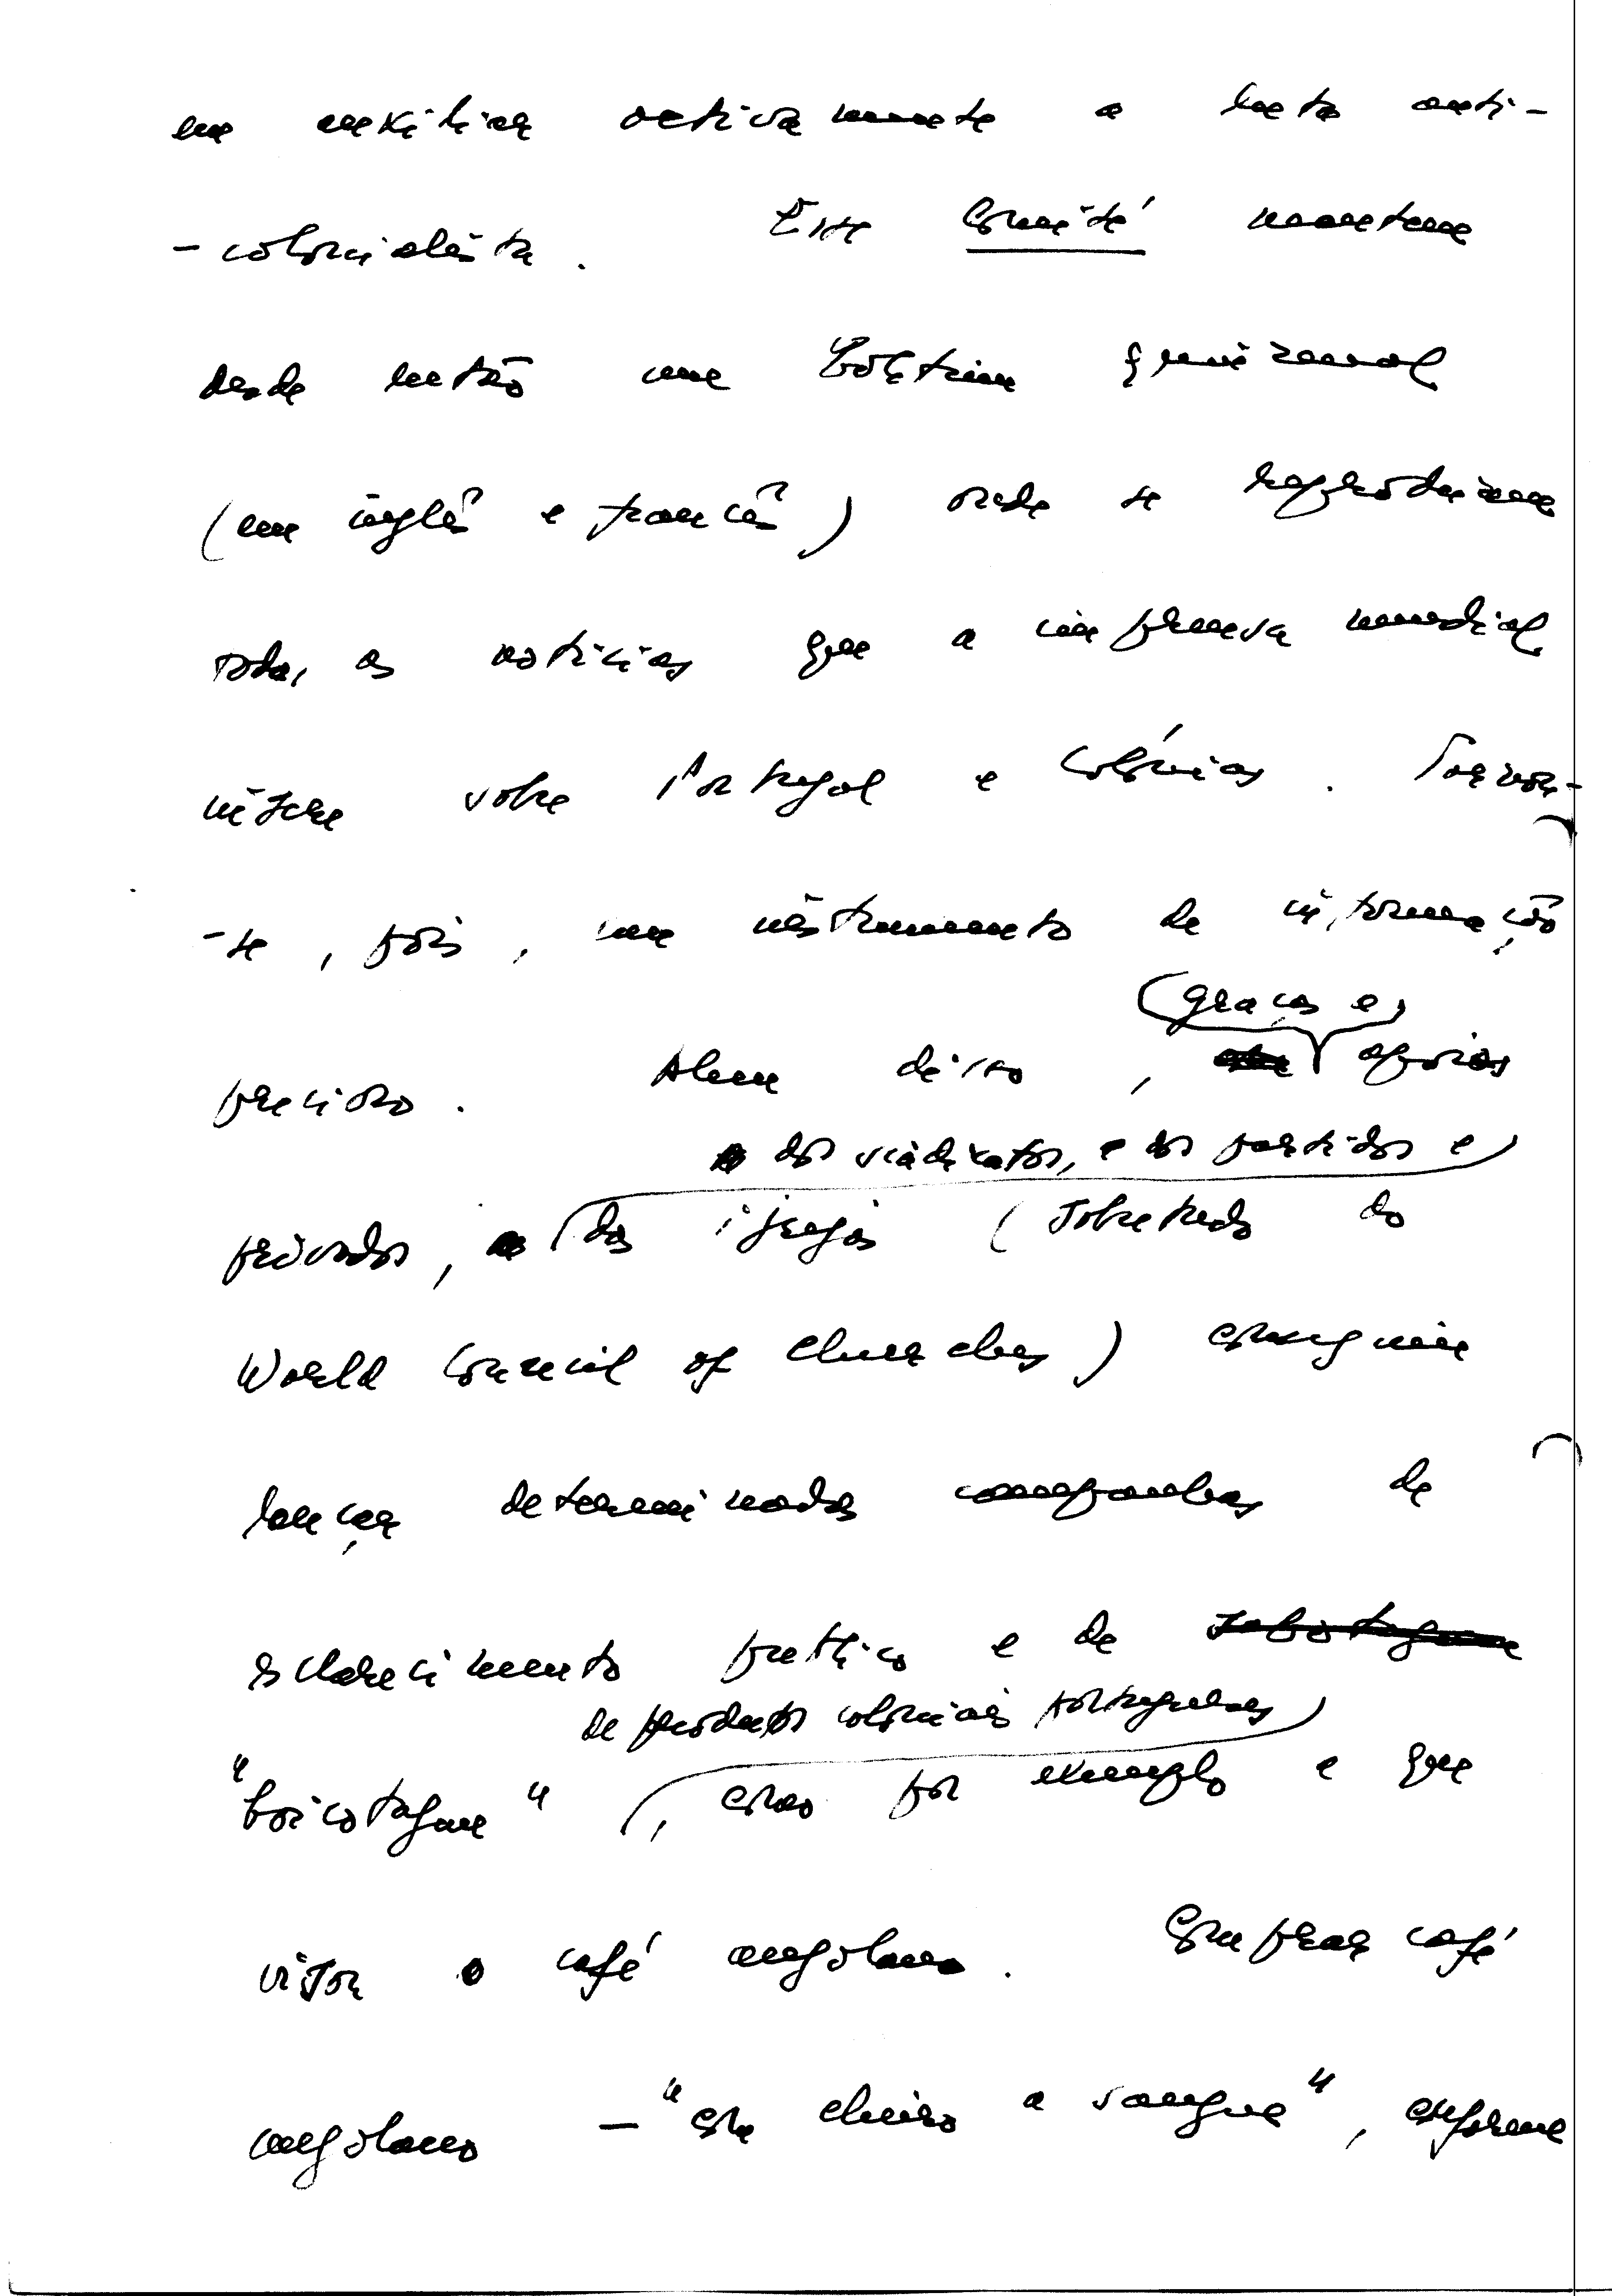 em auxiliar activamente a luta anti-
-colonialista. Esse Comité mantem
desde então um boletim quinzenal
(em inglês e francês) onde se reproduzem
todas as noticias que a imprensa mundial
insere sobre Portugal e Colónias. Tornou-
-se, pois, um instrumento de informação
(graças a)
precioso. Alem disso, apoios
dos sindicatos, e dos partidos e
privados, das igrejas (sobretudo do
World Council of Churches) consegue
lançar determinadas campanhas de
esclarecimento público e de sabotagem
de produtos coloniais portugueses
"boicotagem", como por exemplo a que
visou o café angolano. Comprar café
angolano - "com cheiro a sangue", conforme